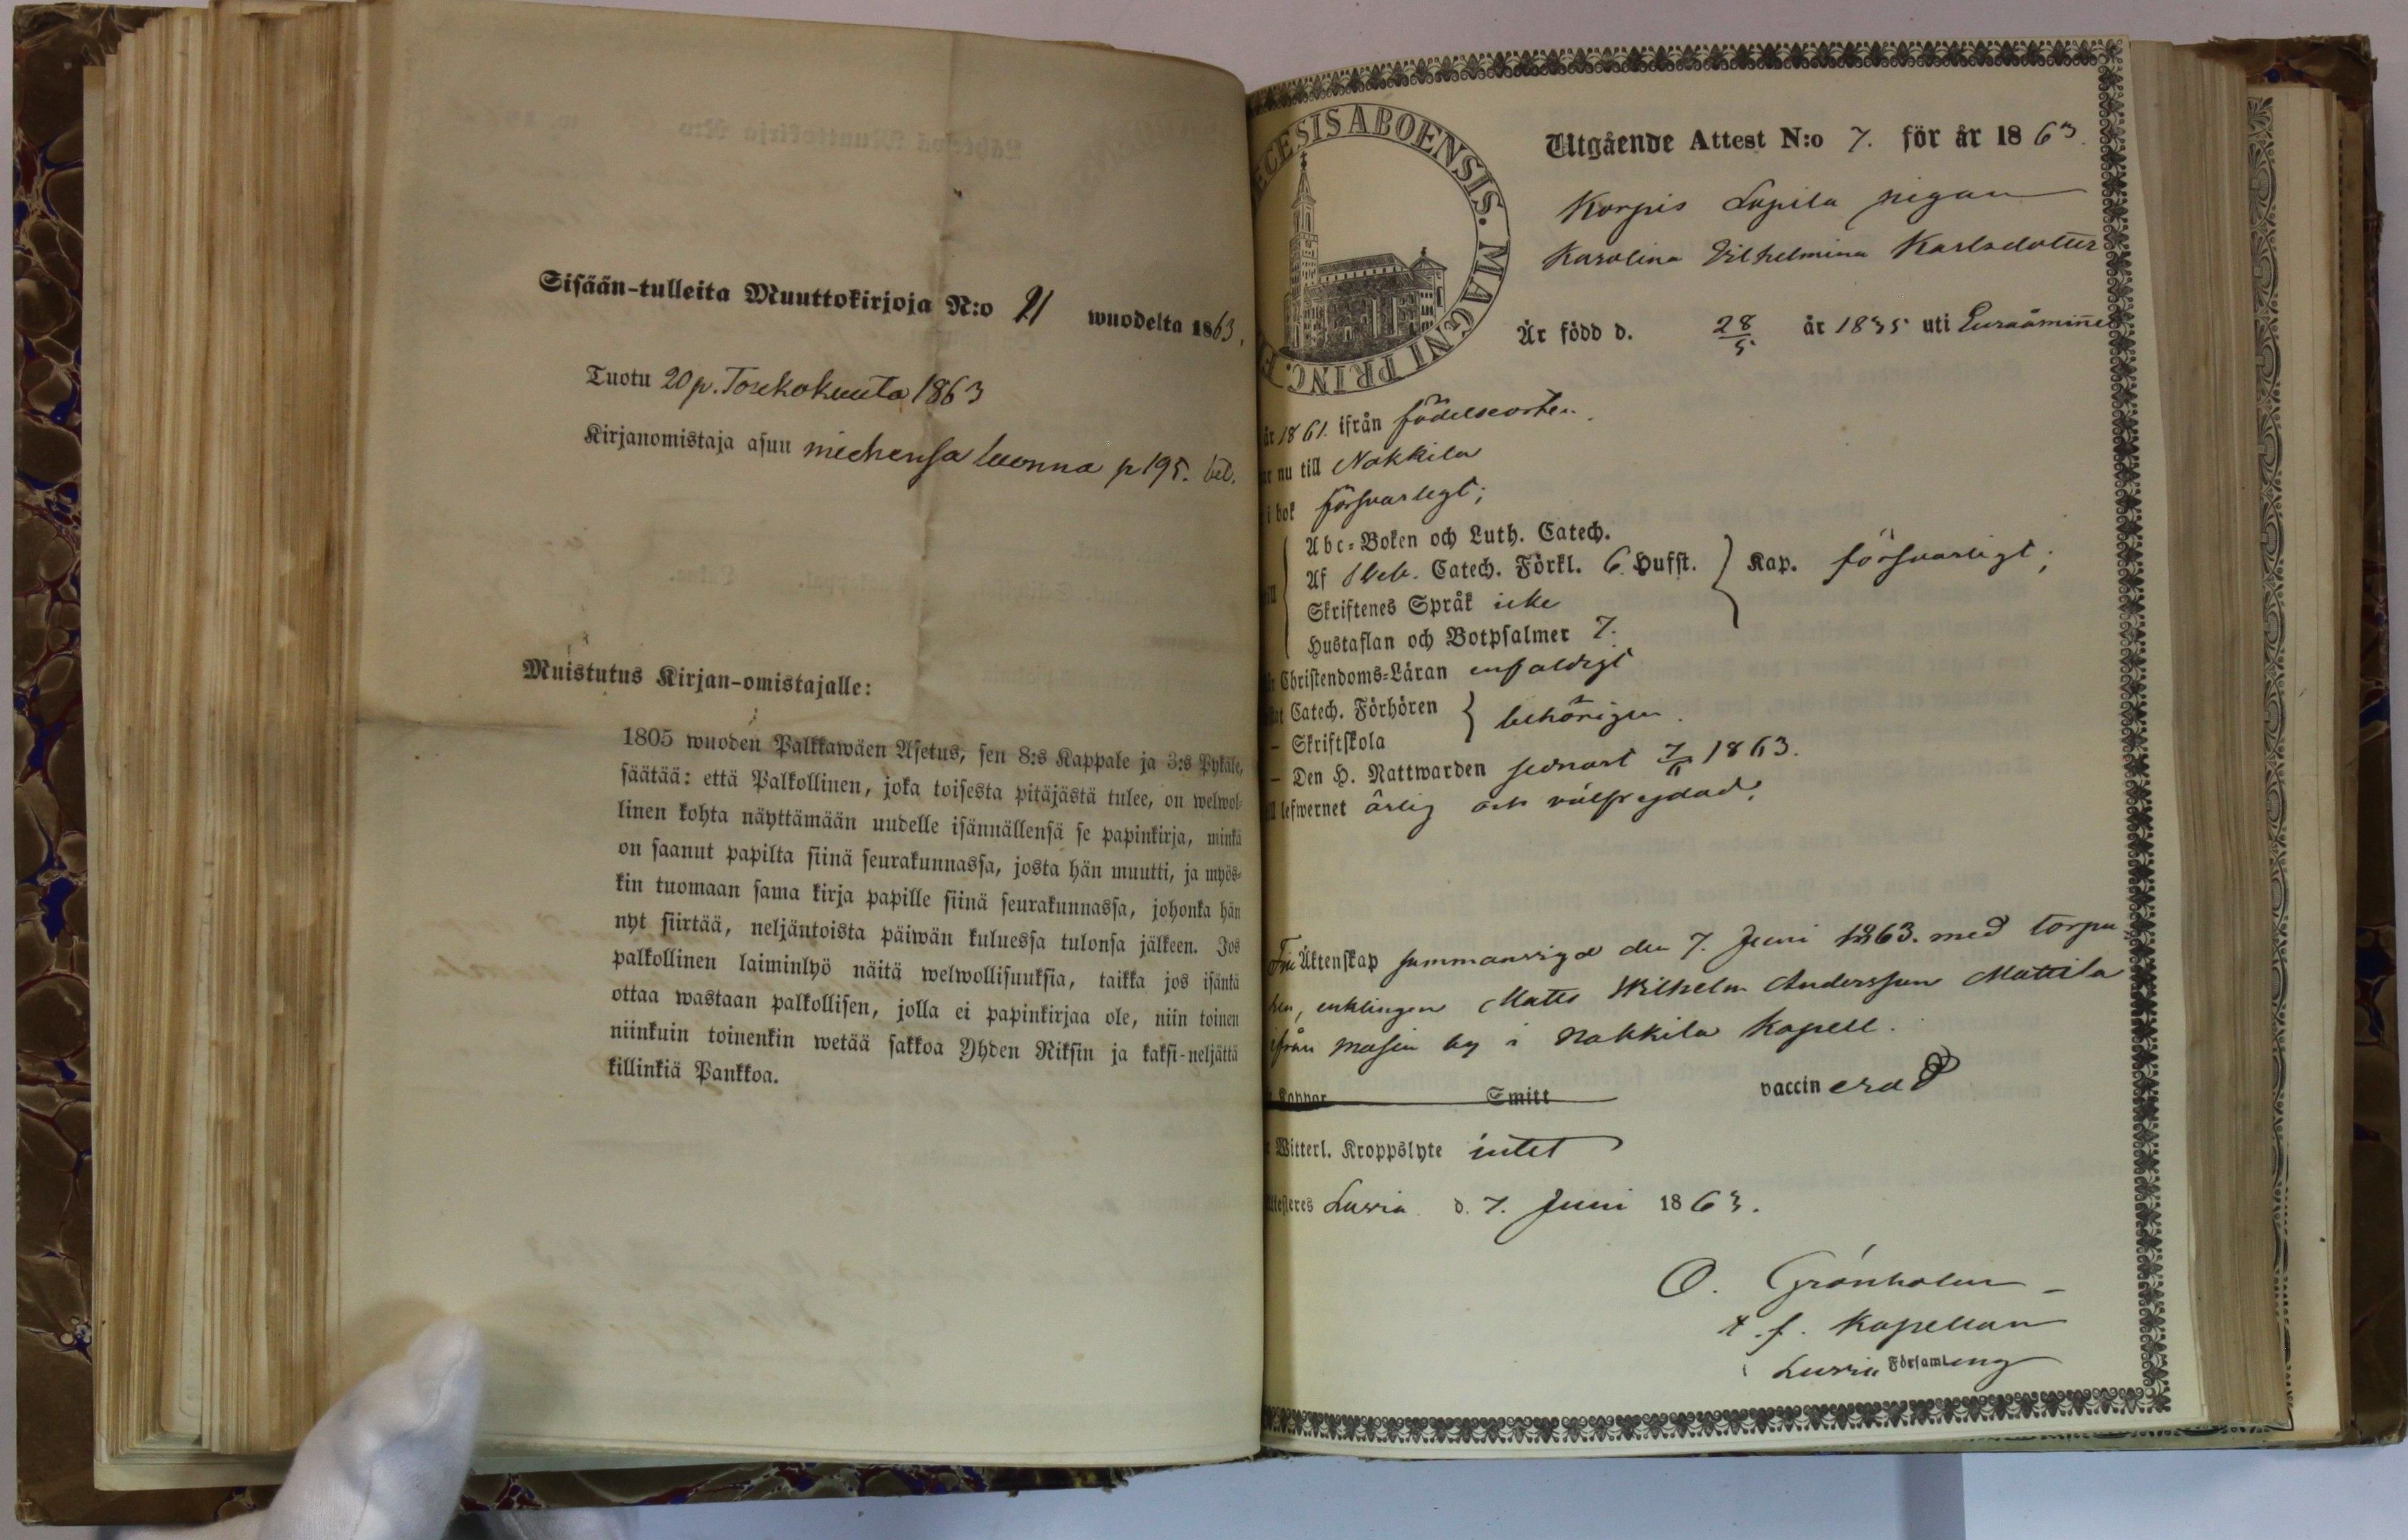 Sisään-tulleita Muuttokirjoja N:o 21 wuodelta 1863.
Tuotu 20 p. Toukokuuta 1863
Kirjanomistaja asuu miehensä luonna p 195.
Muistutus Kirjan-omistajalle:
1805 wuoden Palkkawäen Asetus, sen 8:s Kappale ja 3:s Pykäle,
säätää: että Palkollinen, joka toisesta pitäjästä tulee, on welwol-
linen kohta näyttämään uudelle isännällensä se papinkirja, minkä
on saanut papilta siinä seurakunnassa, josta hän muutti, ja myös-
kin tuomaan sama kirja papille siinä seurakunnassa, johonka hän
nyt siirtää, neljäntoista päiwän kuluessa tulonsa jälkeen. Jos
palkollinen laiminlyö näitä welwollisuuksia, taikka jos isäntä
ottaa wastaan palkollisen, jolla ei papinkirjaa ole, niin toinen
niinkuin toinenkin wetää sakkoa Yhden Riksin ja kaksi-neljättä
killinkiä Pankkoa.
ECESIS ABOENSIS. MAGNI PRINC. F
Utgående Attest N:o 7. för år 1863.
Korpis Lupila pigan
Karolina Vilhelmina Karlsdotter
Är född d. 28/5 år 1835 uti Euraåminne
år 1861. ifrån födelseorten.
ar nu till Nakkila
i bok försvarligt;
Abc-Boken och Luth. Catech.
Af Sveb. Catech. Förkl. 6. Hufst. } Kap. försvarligt;
Skriftenes Språk icke
Hustaflan och Botpsalmer 7.
Christendoms-Läran enfaldigt
Catech. Förhören { behörigen.
– Skriftskola
– Den H. Nattwarden sednast 7/6 1863.
lefwernet ärlig och välfrejdad.
Äktenskap sammanvigd den 7. Juni 1863. med torpa
ren, enklingen Matts Wilhelm Andersson Mattila
ifrån Masia by i Nakkila Kapell.
Koppor Smitt vaccinerad
Witterl. Kroppslyte intet
Attesteres Luvia d. 7. Juni 1863.
O. Grönholm
t. f. Kapellan
i Luvia Församling